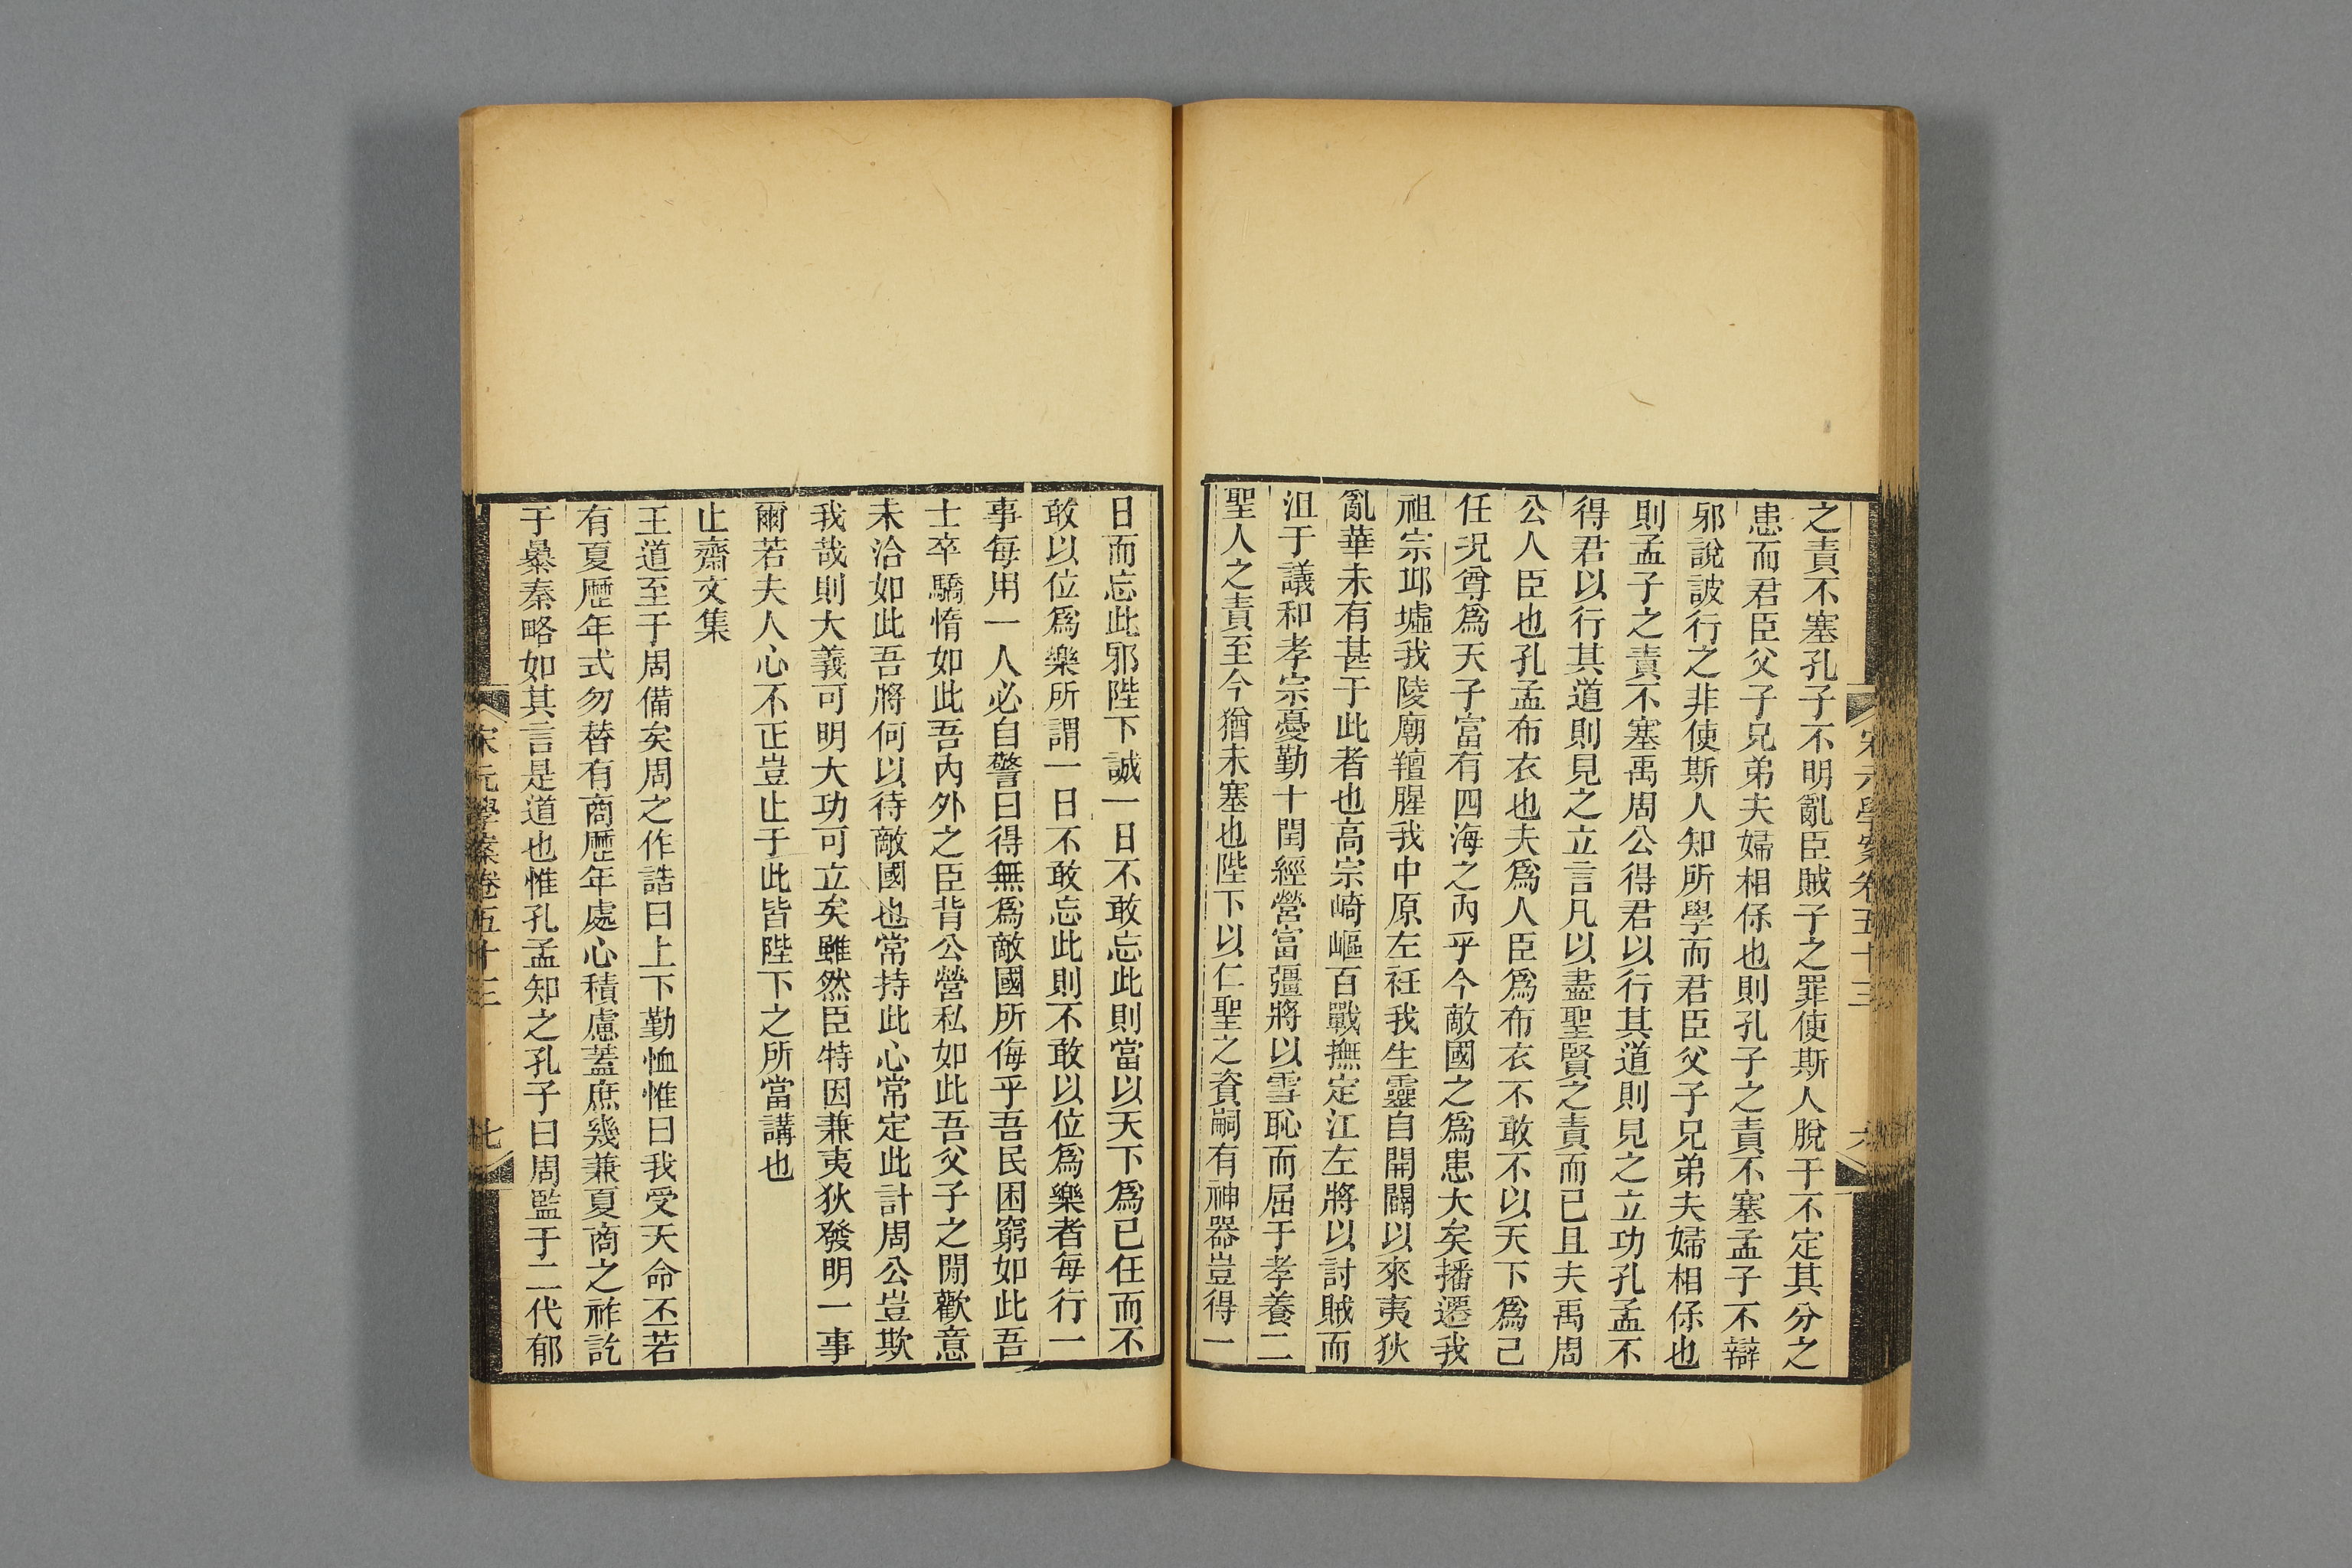 宋元學案卷五十三
六
之責不塞孔子不明亂臣賊子之罪使斯人脫于不定其分之
患而君臣父子兄弟夫婦相保也則孔子之責不塞孟子不辯
邪說詖行之非使斯人知所學而君臣父子兄弟夫婦相保也
則孟子之責不塞禹周公得君以行其道則見之立功孔孟不
得君以行其道則見之立言凡以盡聖賢之責而已且夫禹周
公人臣也孔孟布衣也夫爲人臣爲布衣不敢不以天下爲己
任況尊爲天子富有四海之內乎今敵國之爲患大矣播遷我
祖宗邱墟我陵廟羶腥我中原左衽我生靈自開闢以來夷狄
亂華未有甚于此者也高宗崎嶇百戰撫定江左將以討賊而
沮于議和孝宗憂勤十閏經營富彊將以雪恥而屈于孝養二
聖人之責至今猶未塞也陛下以仁聖之資嗣有神器豈得一
日而忘此邪陛下誠一日不敢忘此則當以天下爲已任而不
敢以位爲樂所謂一日不敢忘此則不敢以位爲樂者每行一
事每用一人必自警曰得無爲敵國所侮乎吾民困窮如此吾
士卒驕惰如此吾內外之臣背公營私如此吾父子之閒歡意
未洽如此吾將何以待敵國也常持此心常定此計周公豈欺
我哉則大義可明大功可立矣雖然臣特因兼夷狄發明一事
爾若夫人心不正豈止于此皆陛下之所當講也
止齋文集
王道至于周備矣周之作誥曰上下勤恤惟曰我受天命丕若
有夏歷年式勿替有商歷年處心積慮蓋庶幾兼夏商之祚訖
于暴秦略如其言是道也惟孔孟知之孔子曰周監于二代郁
宋元學案卷五十三
七